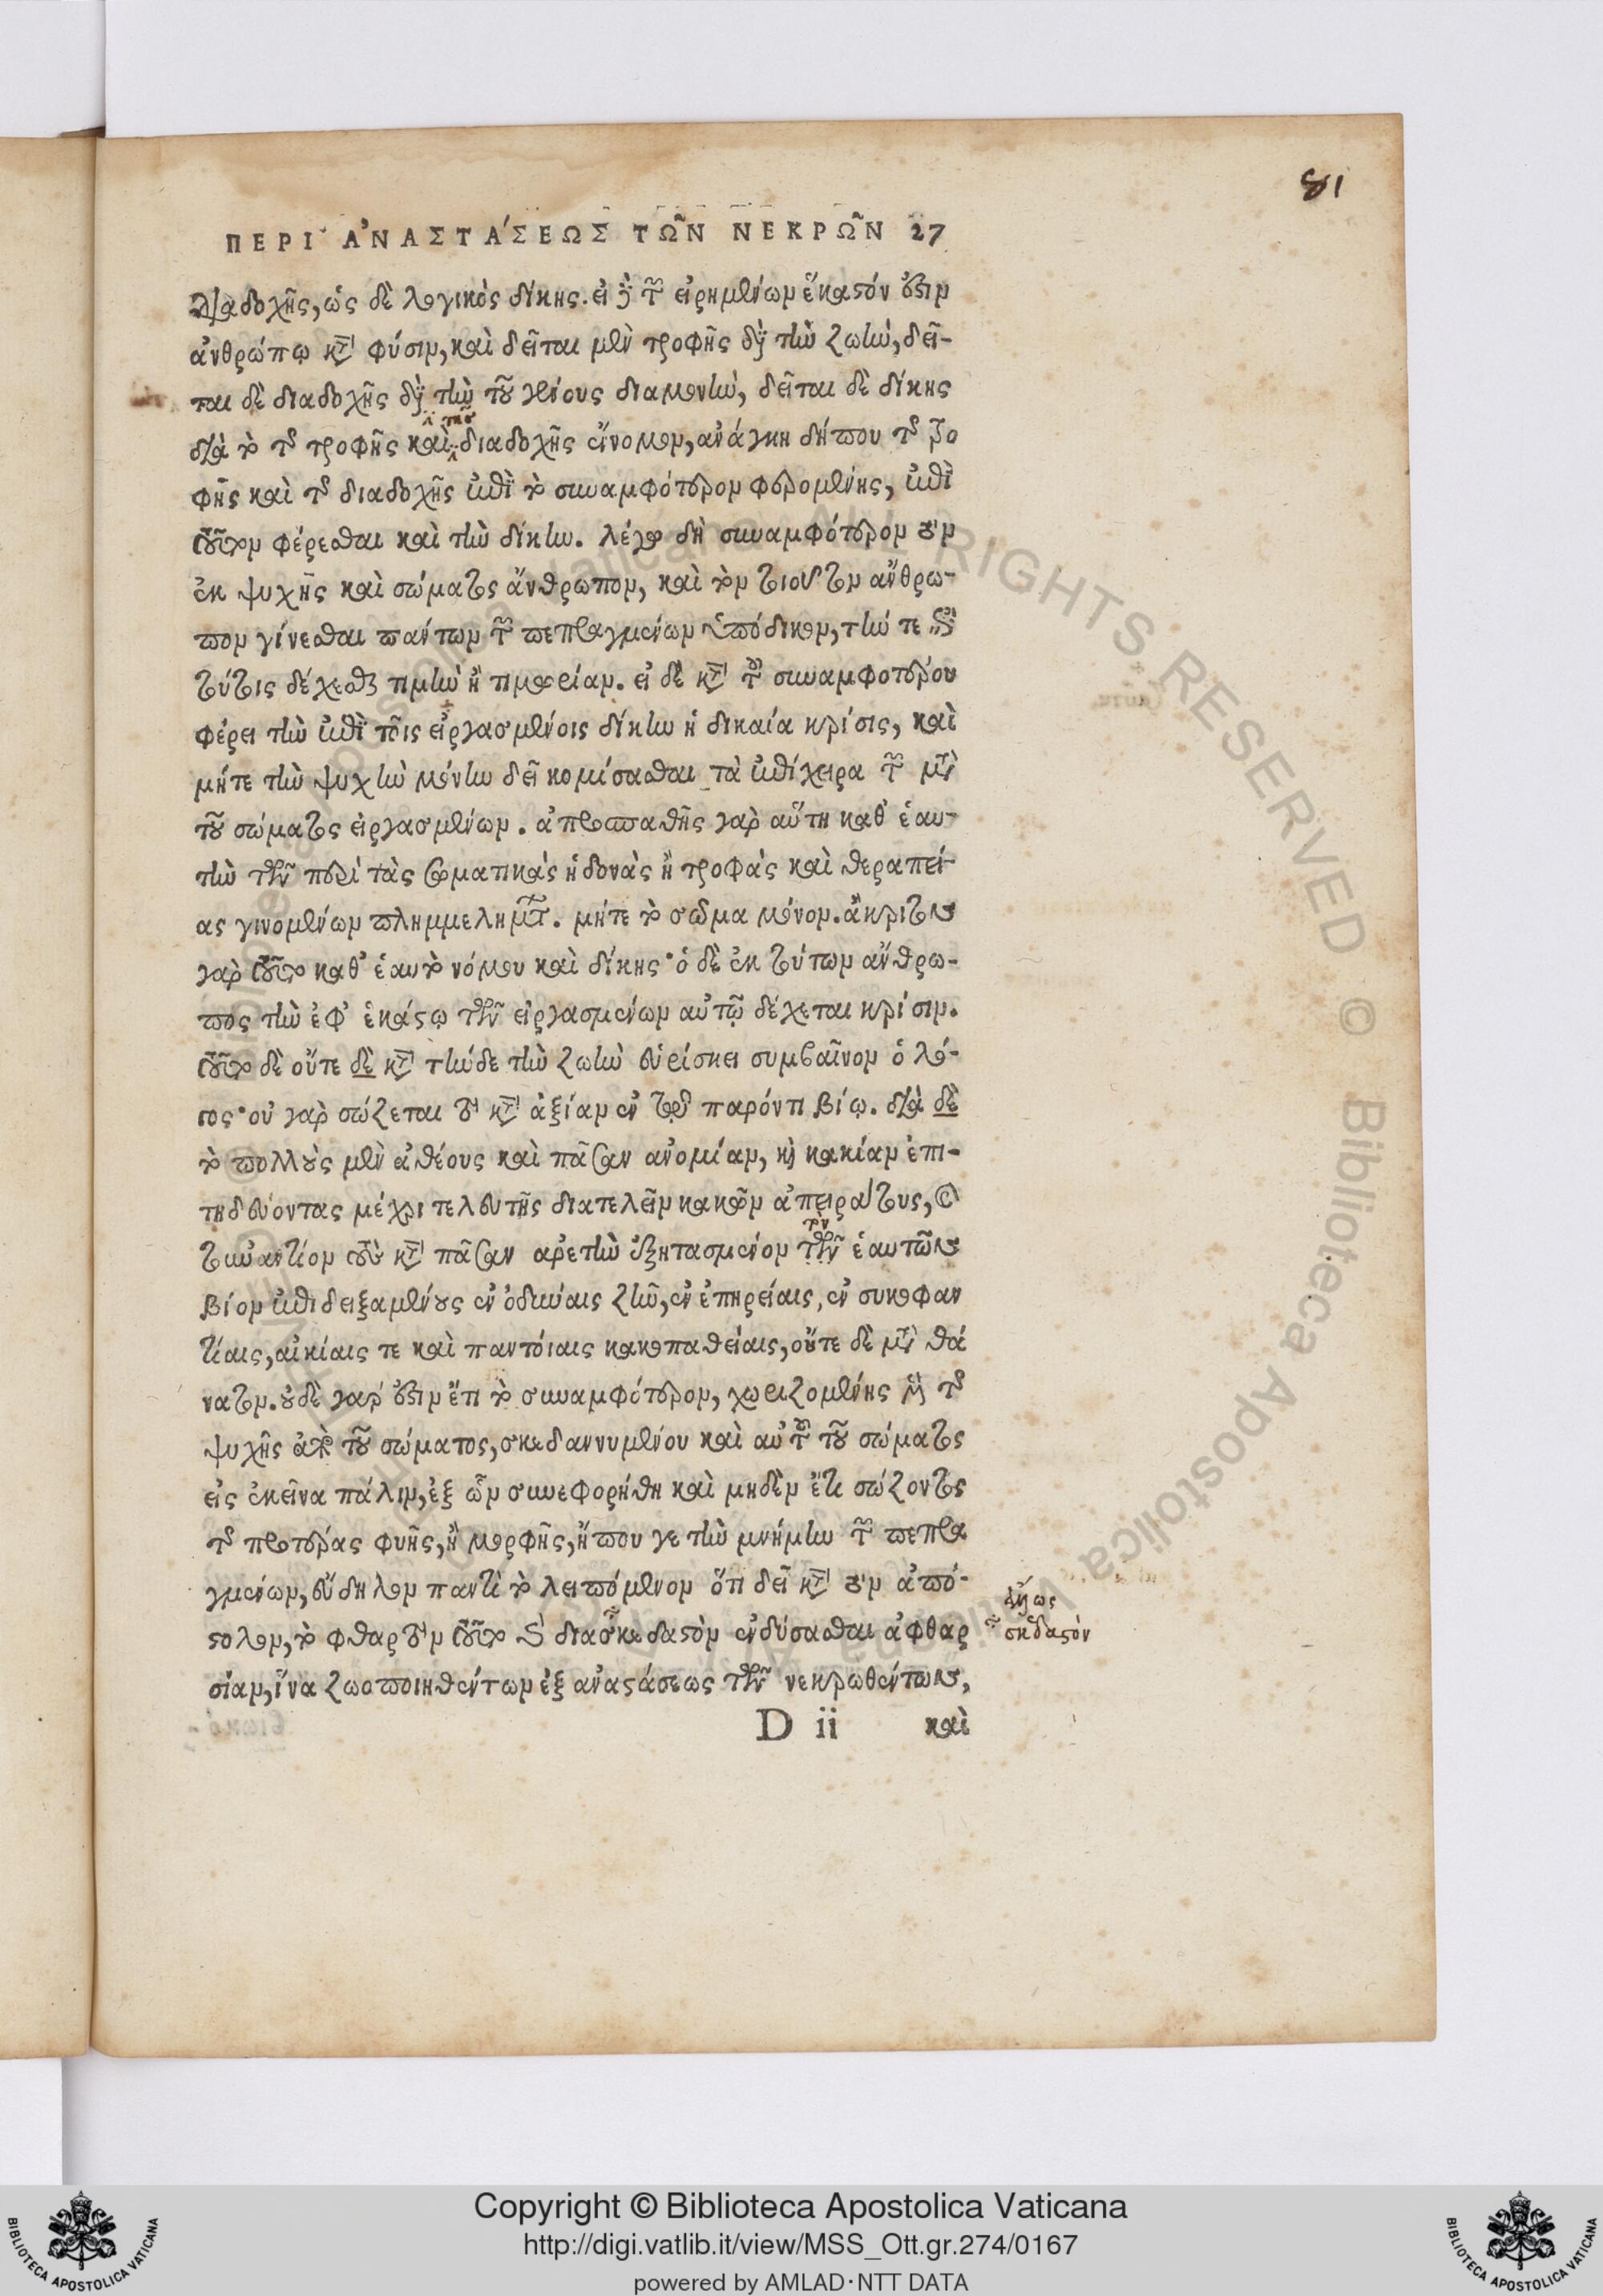 81
ΠΕΡΙ ἈΝΑΣΤΆΣΕΩΣ ΤΩ͂Ν ΝΕΚΡΩ͂Ν 27
διαδοχῆς, ὡς δὲ λογικὸς δίκης. εἰ δὲ τῶν εἰρημένων ἕκαστόν ἐστιν
ἀνθρώπῳ κατὰ φύσιν, καὶ δεῖται μὲν τροφῆς διὰ τὴν ζωὴν, δεῖ-
ται δὲ διαδοχῆς διὰ τὴν τοῦ γένους διαμονὴν, δεῖται δὲ δίκης
διὰ τὸ τῆς τροφῆς καὶ τῆς διαδοχῆς ἔννομον, ἀνάγκη δήπου τῆς τρο
φῆς καὶ τῆς διαδοχῆς ἐπὶ τὸ συναμφότερον φερομένης, ἐπὶ
τοῦτον φέρεσθαι καὶ τὴν δίκην. λέγω δὴ συναμφότερον τὸν
ἐκ ψυχῆς καὶ σώματος ἄνθρωπον, καὶ τὸν τοιοῦτον ἄνθρω-
πον γίνεσθαι πάντων τῶν πεπραγμένων ὑπόδικον, τήν τε ἐπὶ
τούτοις δέχεσθαι τιμὴν ἢ τιμωρίαν. εἰ δὲ κατὰ τοῦ συναμφοτέρου
φέρει τὴν ἐπὶ τοῖς εἰργασμένοις δίκην ἡ δικαία κρίσις, καὶ
μήτε τὴν ψυχὴν μόνην δεῖ κομίσασθαι τὰ ἐπίχειρα τῶν μετὰ
τοῦ σώματος εἰργασμένων. ἀπροσπαθὴς γὰρ αὕτη καθ' ἑαυ-
τὴν τῶν περὶ τὰς σωματικάς ἡδονὰς ἢ τροφὰς καὶ θεραπεί-
ας γινομένων πλημμελημάτων. μήτε τὸ σῶμα μόνον. ἄκριτον
γὰρ τοῦτο καθ' ἑαυτὸ νόμου καὶ δίκης· ὁ δὲ ἐκ τούτων ἄνθρω-
πος τὴν ἐφ' ἑκάστῳ τῶν εἰργασμένων αὐτῷ δέχεται κρίσιν.
τοῦτο δὲ οὔτε δὲ κατὰ τήνδε τὴν ζωὴν εὑρίσκει συμβαῖνον ὁ λό-
γος· οὐ γὰρ σώζεται τὸ κατὰ ἀξίαν ἐν τῷ παρόντι βίῳ. διὰ δὲ
τὸ πολλοὺς μὲν ἀθέους καὶ πᾶσαν ἀνομίαν, καὶ κακίαν ἐπι-
τηδεύοντας μέχρι τελευτῆς διατελεῖν κακῶν ἀπειράτους, καὶ
τοὐναντίον τοὺς κατὰ πᾶσαν ἀρετὴν ἐξητασμένον τὸν τῶν ἑαυτῶν
βίον ἐπιδειξαμένους ἐν ὀδύναις ζῆν, ἐν ἐπηρείαις, ἐν συκοφαν
τίαις, αἰκίαις τε καὶ παντοίαις κακοπαθείαις, οὔτε δὲ μετὰ θά
νατον. οὐδὲ γὰρ ἐστιν ἔτι τὸ συναμφότερον, χωριζομένης μὲν τῆς
ψυχῆς ἀπὸ τοῦ σώματος, σκεδαννυμένου καὶ αὐτοῦ τοῦ σώματος
εἰς ἐκεῖνα πάλιν, ἐξ ὧν συνεφορήθη καὶ μηδὲν ἔτι σώζοντος
τῆς προτέρας φυῆς, ἢ μορφῆς, ἤπου γε τὴν μνήμην τῶν πεπρα
γμένων, εὔδηλον παντὶ τὸ λειπόμενον ὅτι δεῖ κατὰ τὸν ἀπό-
στολον, τὸ φθαρτὸν τοῦτο καὶ διασκεδαστὸν ἐνδύσασθαι ἀφθαρ
σίαν, ἵνα ζωοποιηθέντων ἐξ ἀναστάσεως τῶν νεκρωθέντων,
D ii καὶ
Copyright © Biblioteca Apostolica Vaticana
http://digi.vatlib.it/view/MSS_Ott.gr.274/0167
powered by AMLAD·NTT DATA
BIBLIOTECA APOSTOLICA VATICANA
BIBLIOTECA APOSTOLICA VATICANA